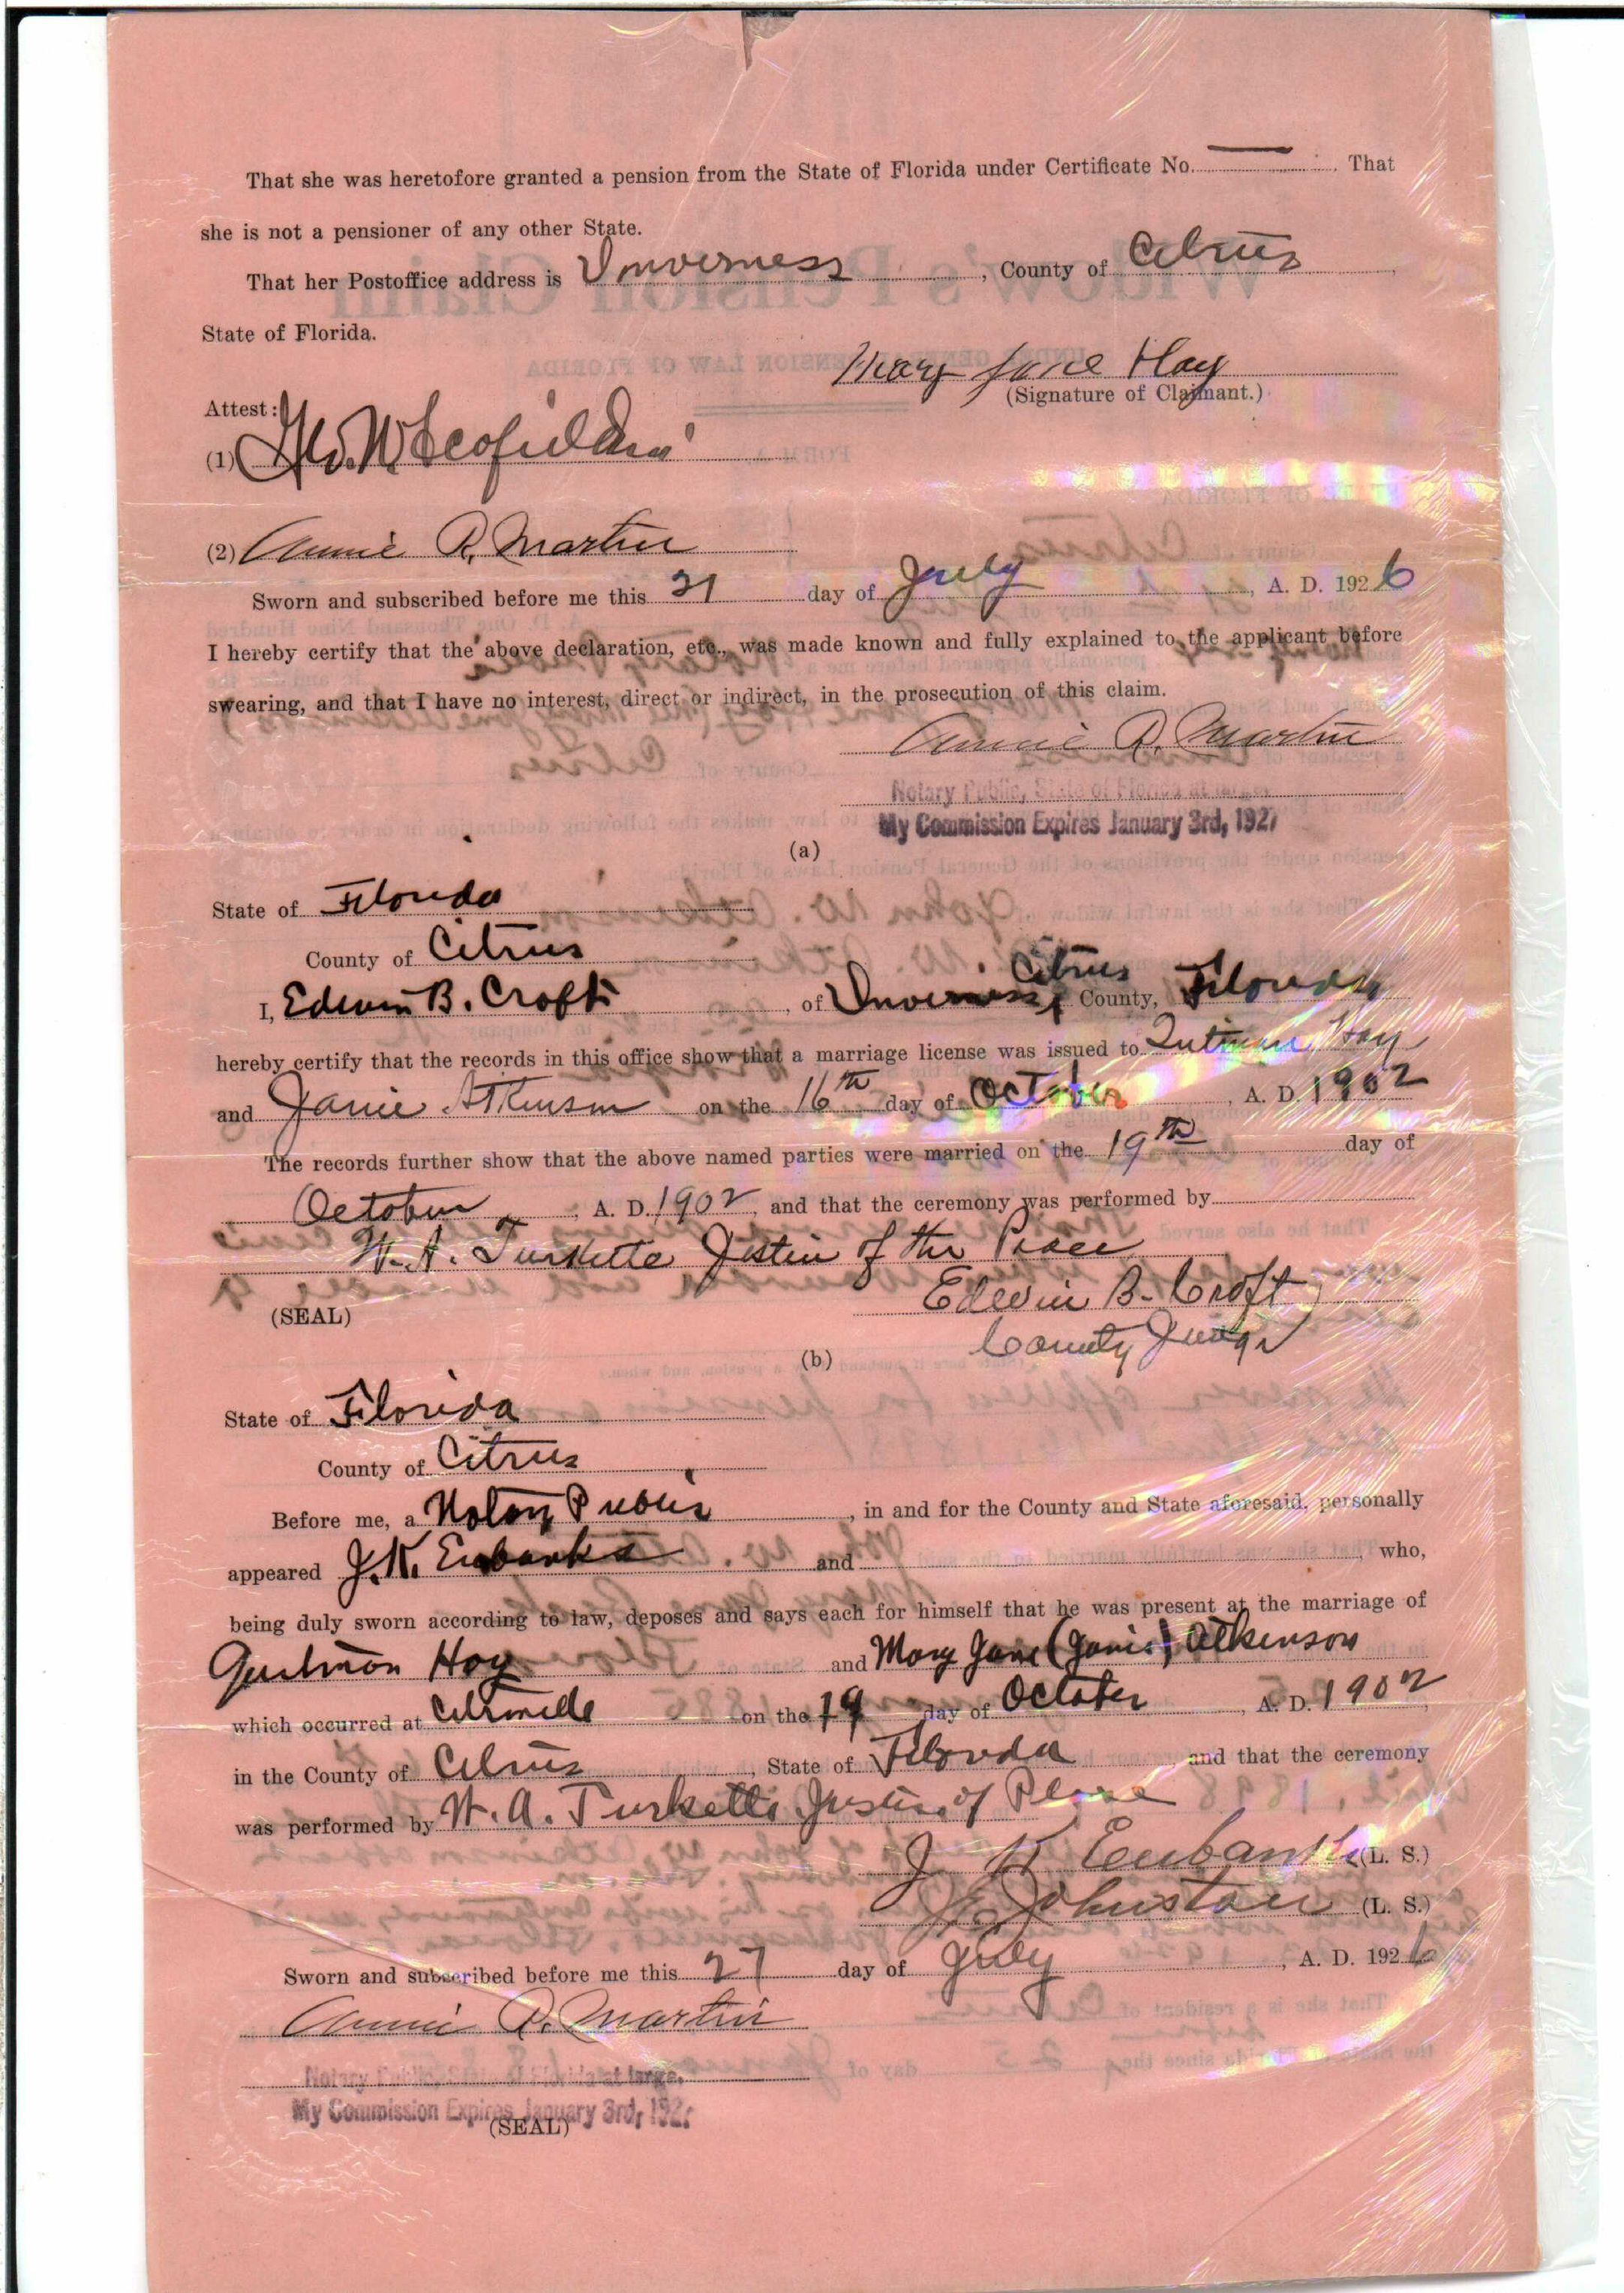 That she was heretofore granted a pension from the State of Florida under Certificate No. — . That
she is not a pensioner of any other State.
That her Postoffice address is Inverness, County of Citrus
State of Florida.
Mary Jane Hay
(Signature of Claimant.)
Attest:
(1) Geo. W. Scofield
(2) Annie R. Martin
Sworn and subscribed before me this 21 day of July, A. D. 1926
I hereby certify that the above declaration, etc., was made known and fully explained to the applicant before
swearing, and that I have no interest, direct or indirect, in the prosecution of this claim.
Annie R. Martin
Notary Public, State of Florida at large.
My Commission Expires January 3rd, 1927
(a)
State of Florida
County of Citrus
I, Edwin B. Croft, of Inverness, Citrus County, Florida,
hereby certify that the records in this office show that a marriage license was issued to Hay
and Janie Atkinson on the 16th day of October, A. D. 1902
The records further show that the above named parties were married on the 19th day of
October, A. D. 1902, and that the ceremony was performed by
W. A. Turkette Justice of the Peace
Edwin B. Croft
(SEAL)
County Judge
(b)
State of Florida
County of Citrus
Before me, a Notary Public, in and for the County and State aforesaid, personally
appeared J. K. Eubanks and , who,
being duly sworn according to law, deposes and says each for himself that he was present at the marriage of
Hay and Mary Jane (Janie) Atkinson
which occurred at on the 19 day of October, A. D. 1902
in the County of Citrus, State of Florida and that the ceremony
was performed by W. A. Turkette Justice of Peace
J. K. Eubanks (L. S.)
Johnston (L. S.)
Sworn and subscribed before me this 27 day of July, A. D. 1926
Annie R. Martin
Notary Public, State of Florida at large.
My Commission Expires January 3rd, 1927
(SEAL)